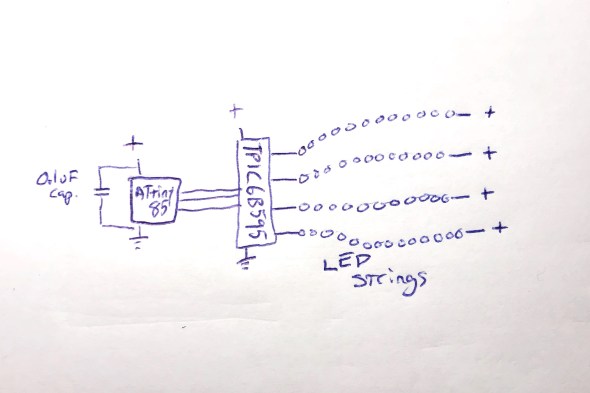 +
+
+
+
+
+
0.1uF
Cap.
ATtiny
85
TPIC6B595
LED
Strings